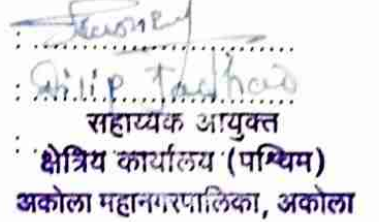 :
: Dilip Jadhav
सहाय्यक आयुक्त
: क्षेत्रिय कार्यालय (पश्चिम)
अकोला महानगरपालिका, अकोला